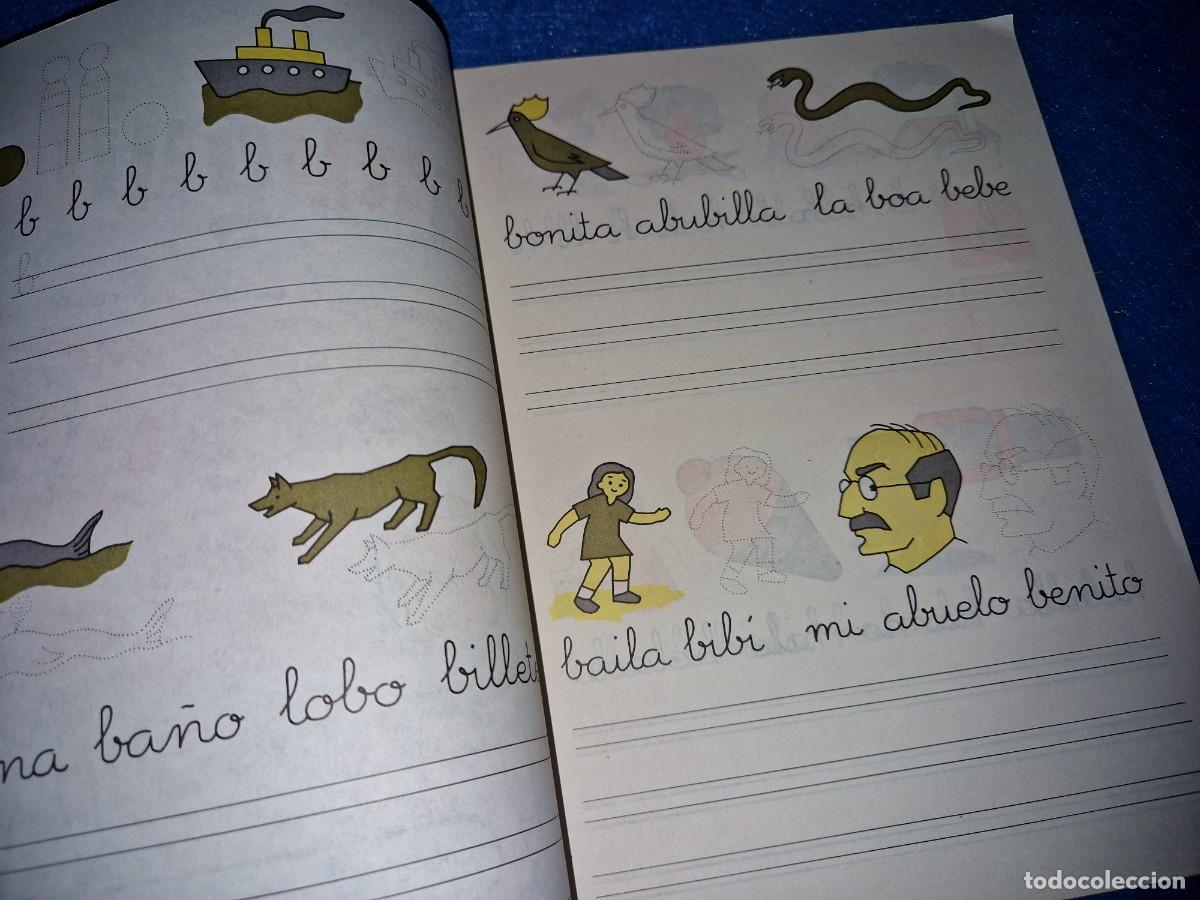 b b b b b b b b
b
baño lobo
bonita abubilla la boa bebe
baila bibí mi abuelo benito
todocoleccion